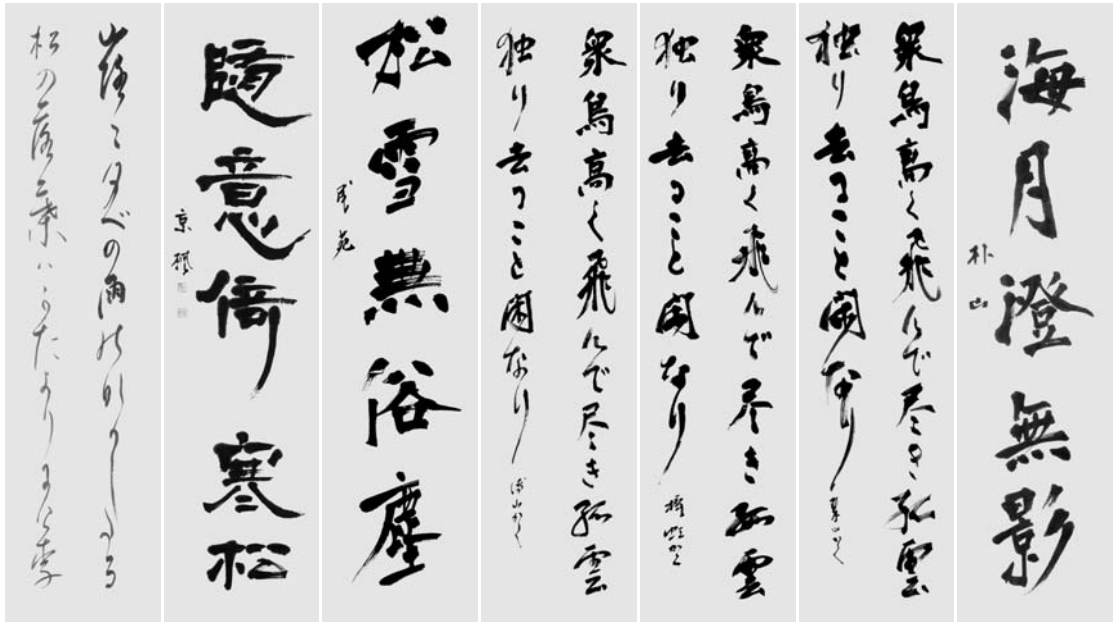 海月澄無影
朴山
衆鳥高く飛んで尽き孤雲
独り去ること閑なり
衆鳥高く飛んで尽き孤雲
独り去ること閑なり
衆鳥高く飛んで尽き孤雲
独り去ること閑なり
松雪無俗塵
隨意倚寒松
京楓
松の落葉ハかたより